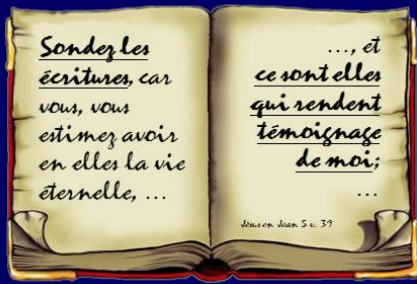 Sondez les
écritures, car
vous, vous
estimez avoir
en elles la vie
éternelle, ...
..., et
ce sont elles
qui rendent
témoignage
de moi;
...
Jésus en Jean 5 v. 39